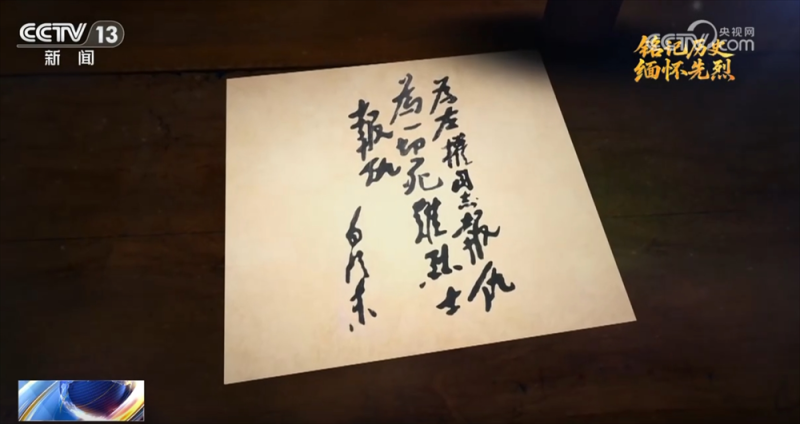 CCTV 13
新闻
央视网
.com
铭记历史
缅怀先烈
为左權同志報仇
為一切死難烈士
報仇
毛泽东